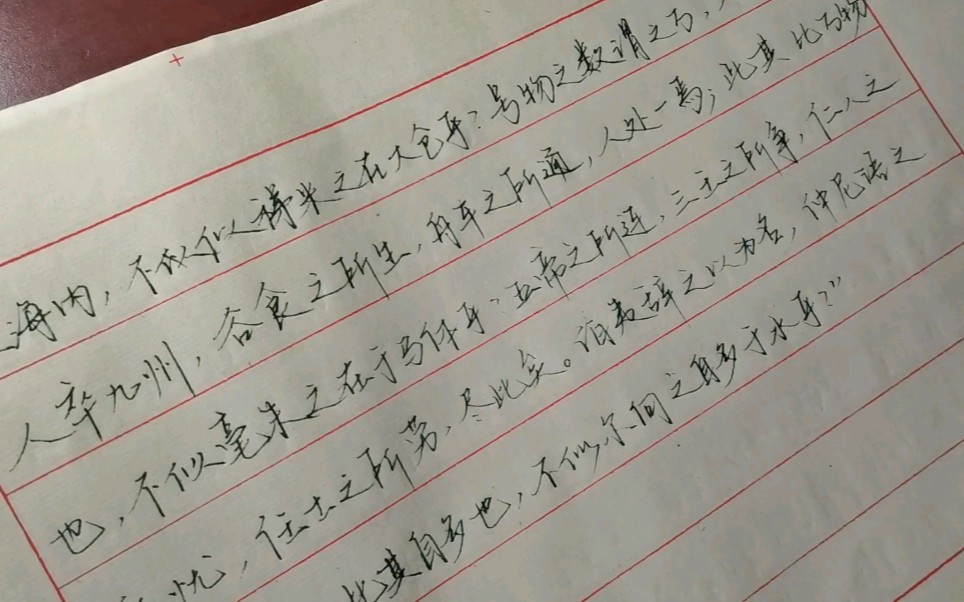 海内，不似稊米之在大仓耳？号物之数谓之万，
人卒九州，谷食之所生，舟车之所通，人处一焉；此其比万物
也，不似毫末之在于马体耳？五帝之所连，三王之所争，仁人之
忧，任士之所劳，尽此矣。伯夷辞之以为名，仲尼语之
此其自多也，不似尔向之自多于水耳？”